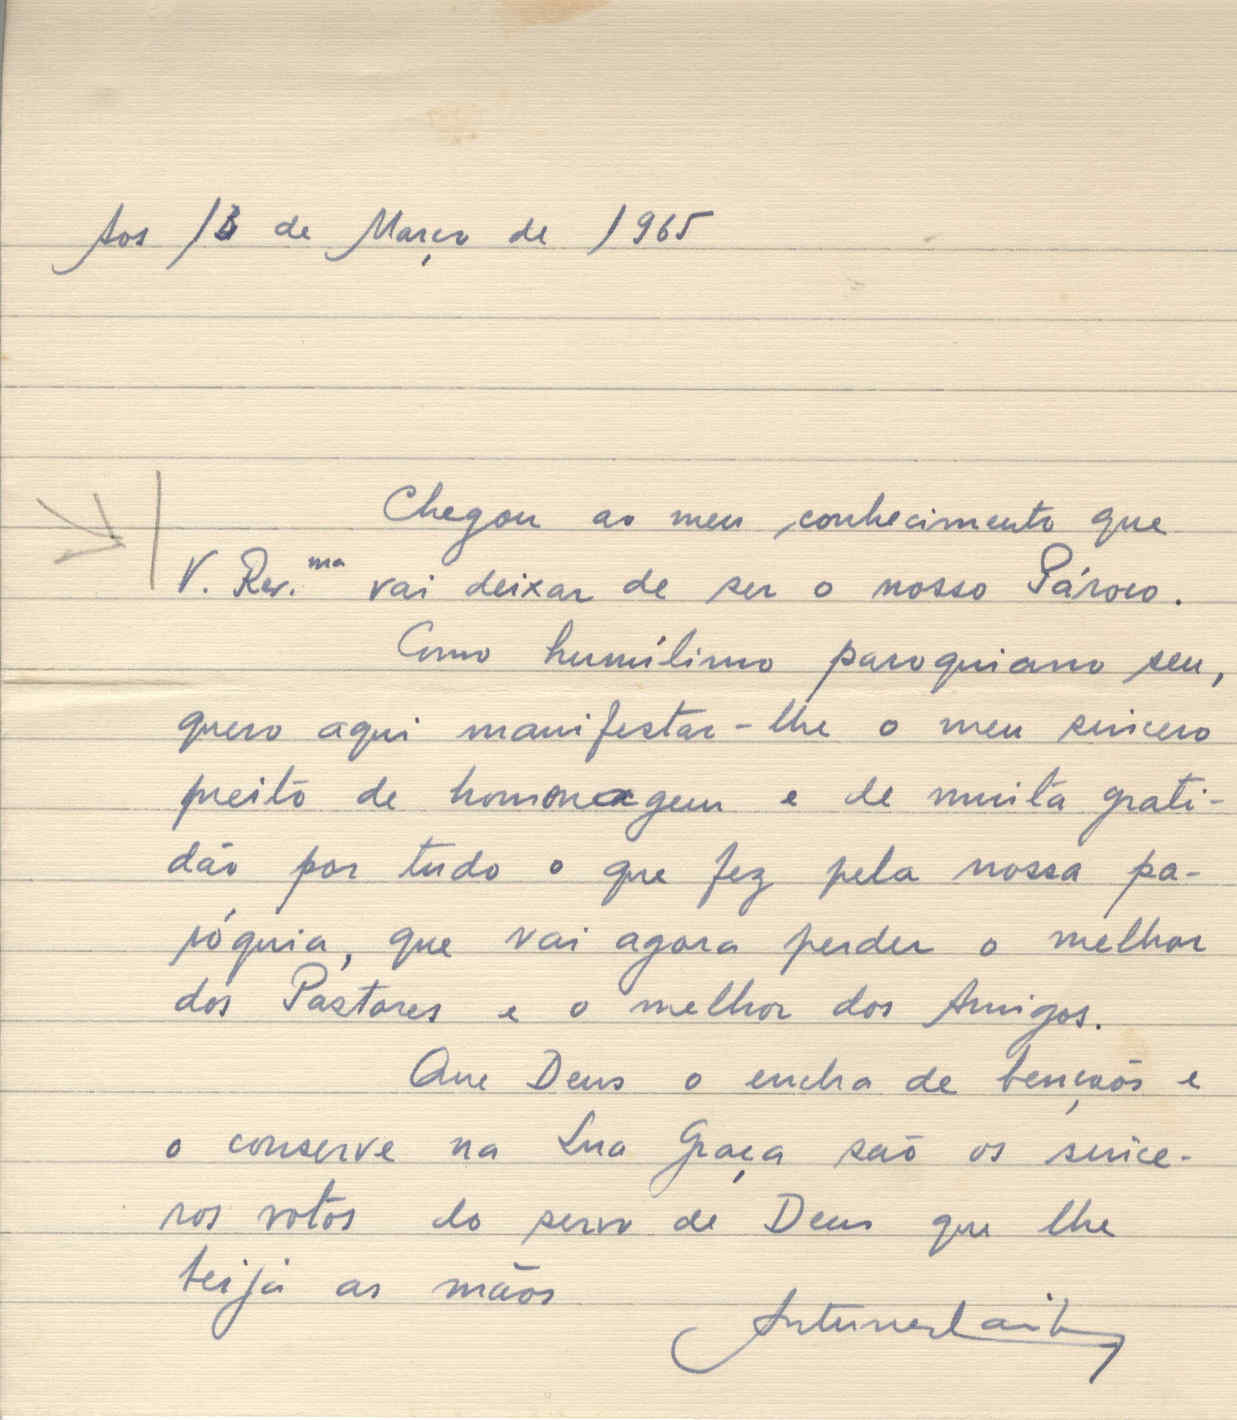 Aos 13 de Março de 1965
Chegou ao meu conhecimento que
V. Rev.ma vai deixar de ser o nosso Pároco.
Como humílimo paroquiano seu,
quero aqui manifestar-lhe o meu sincero
preito de homenagem e de muita grati-
dão por tudo o que fez pela nossa pa-
róquia, que vai agora perder o melhor
dos Pastores e o melhor dos Amigos.
Que Deus o encha de bençãos e
o conserve na Sua Graça são os since-
ros votos do servo de Deus que lhe
beija as mãos